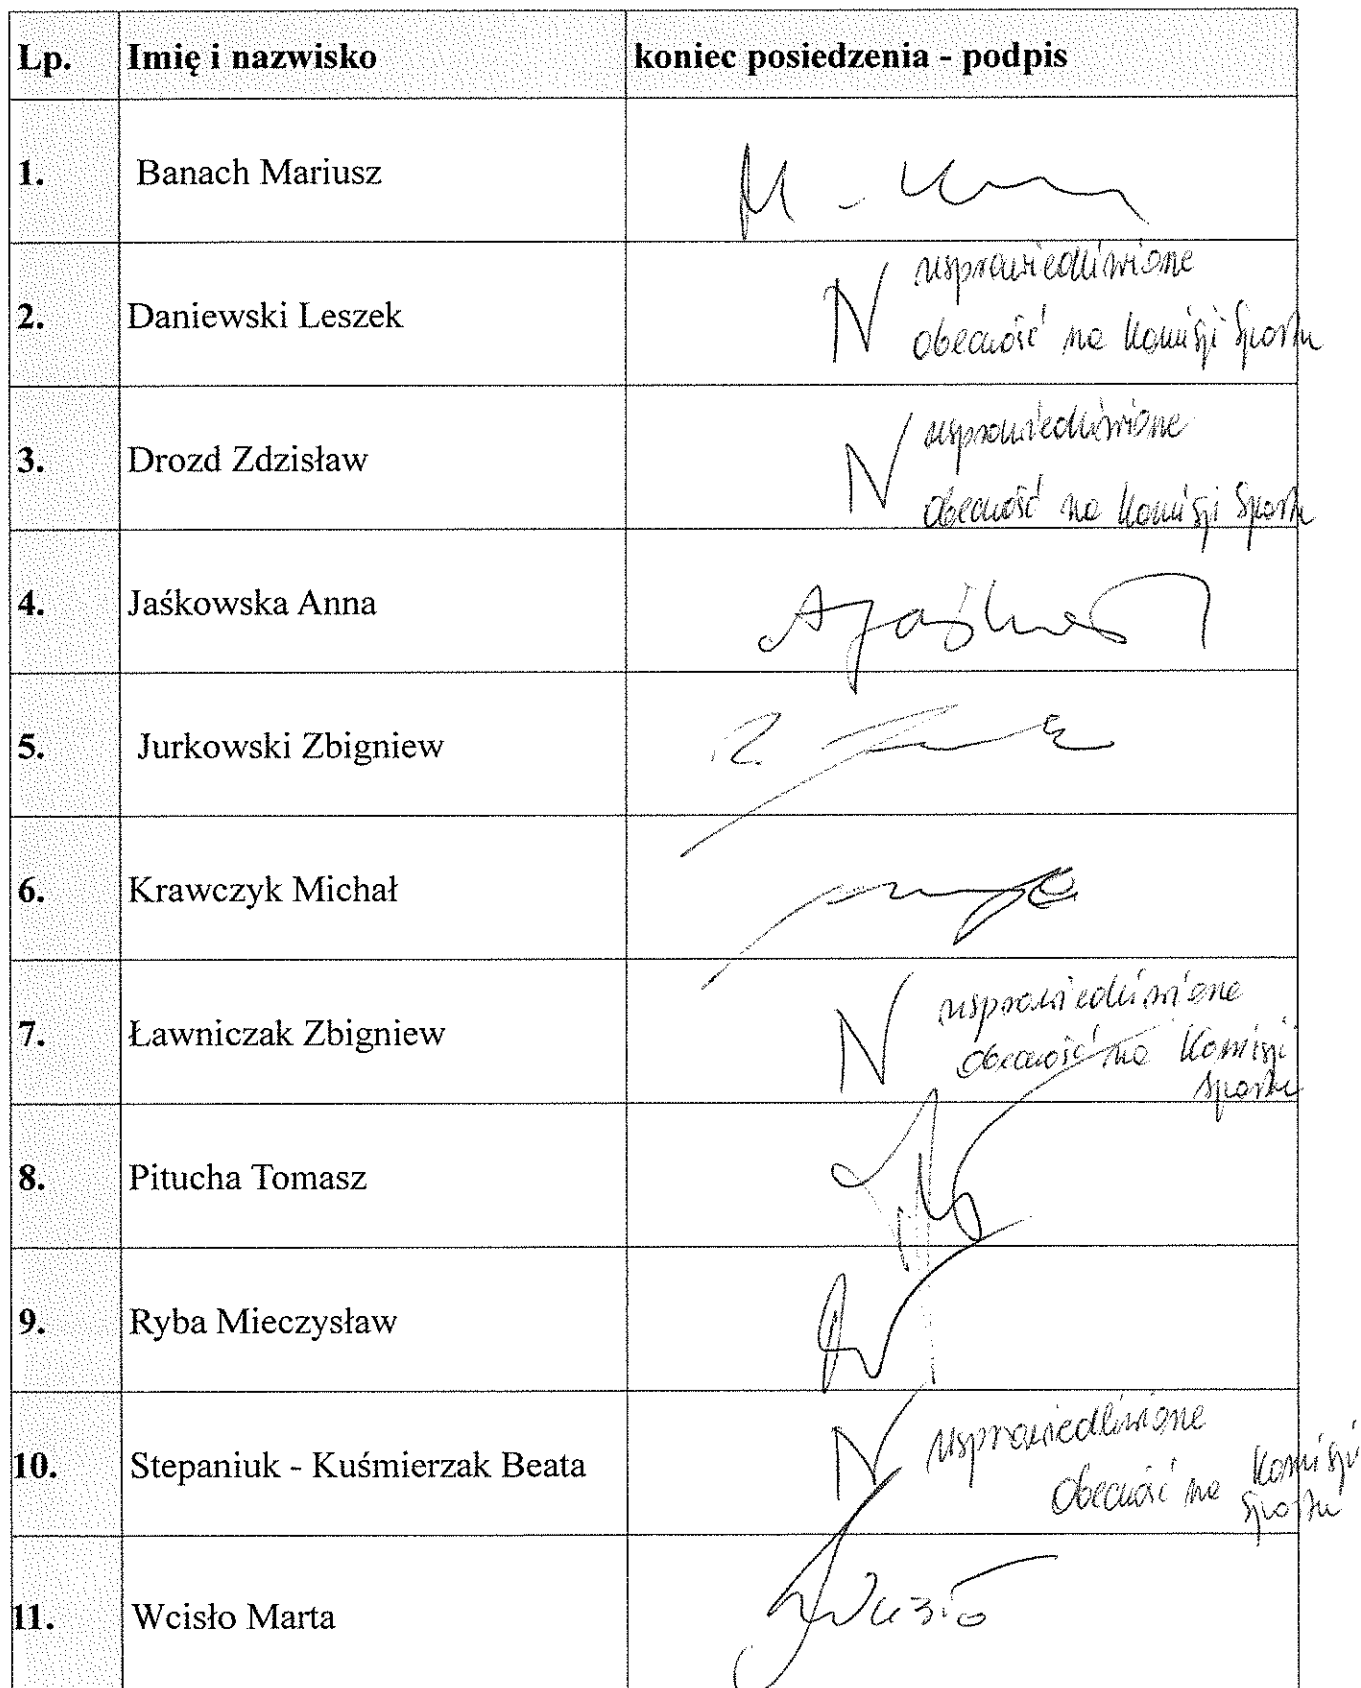 Lp. Imię i nazwisko koniec posiedzenia - podpis
1. Banach Mariusz
2. Daniewski Leszek N usprawiedliwione
obecność na Komisji Sportu
3. Drozd Zdzisław N usprawiedliwione
obecność na Komisji Sportu
4. Jaśkowska Anna
5. Jurkowski Zbigniew
6. Krawczyk Michał
7. Ławniczak Zbigniew N usprawiedliwione
obecność na Komisji
Sportu
8. Pitucha Tomasz
9. Ryba Mieczysław
10. Stepaniuk - Kuśmierzak Beata N usprawiedliwione
obecność na Komisji
Sportu
11. Wcisło Marta